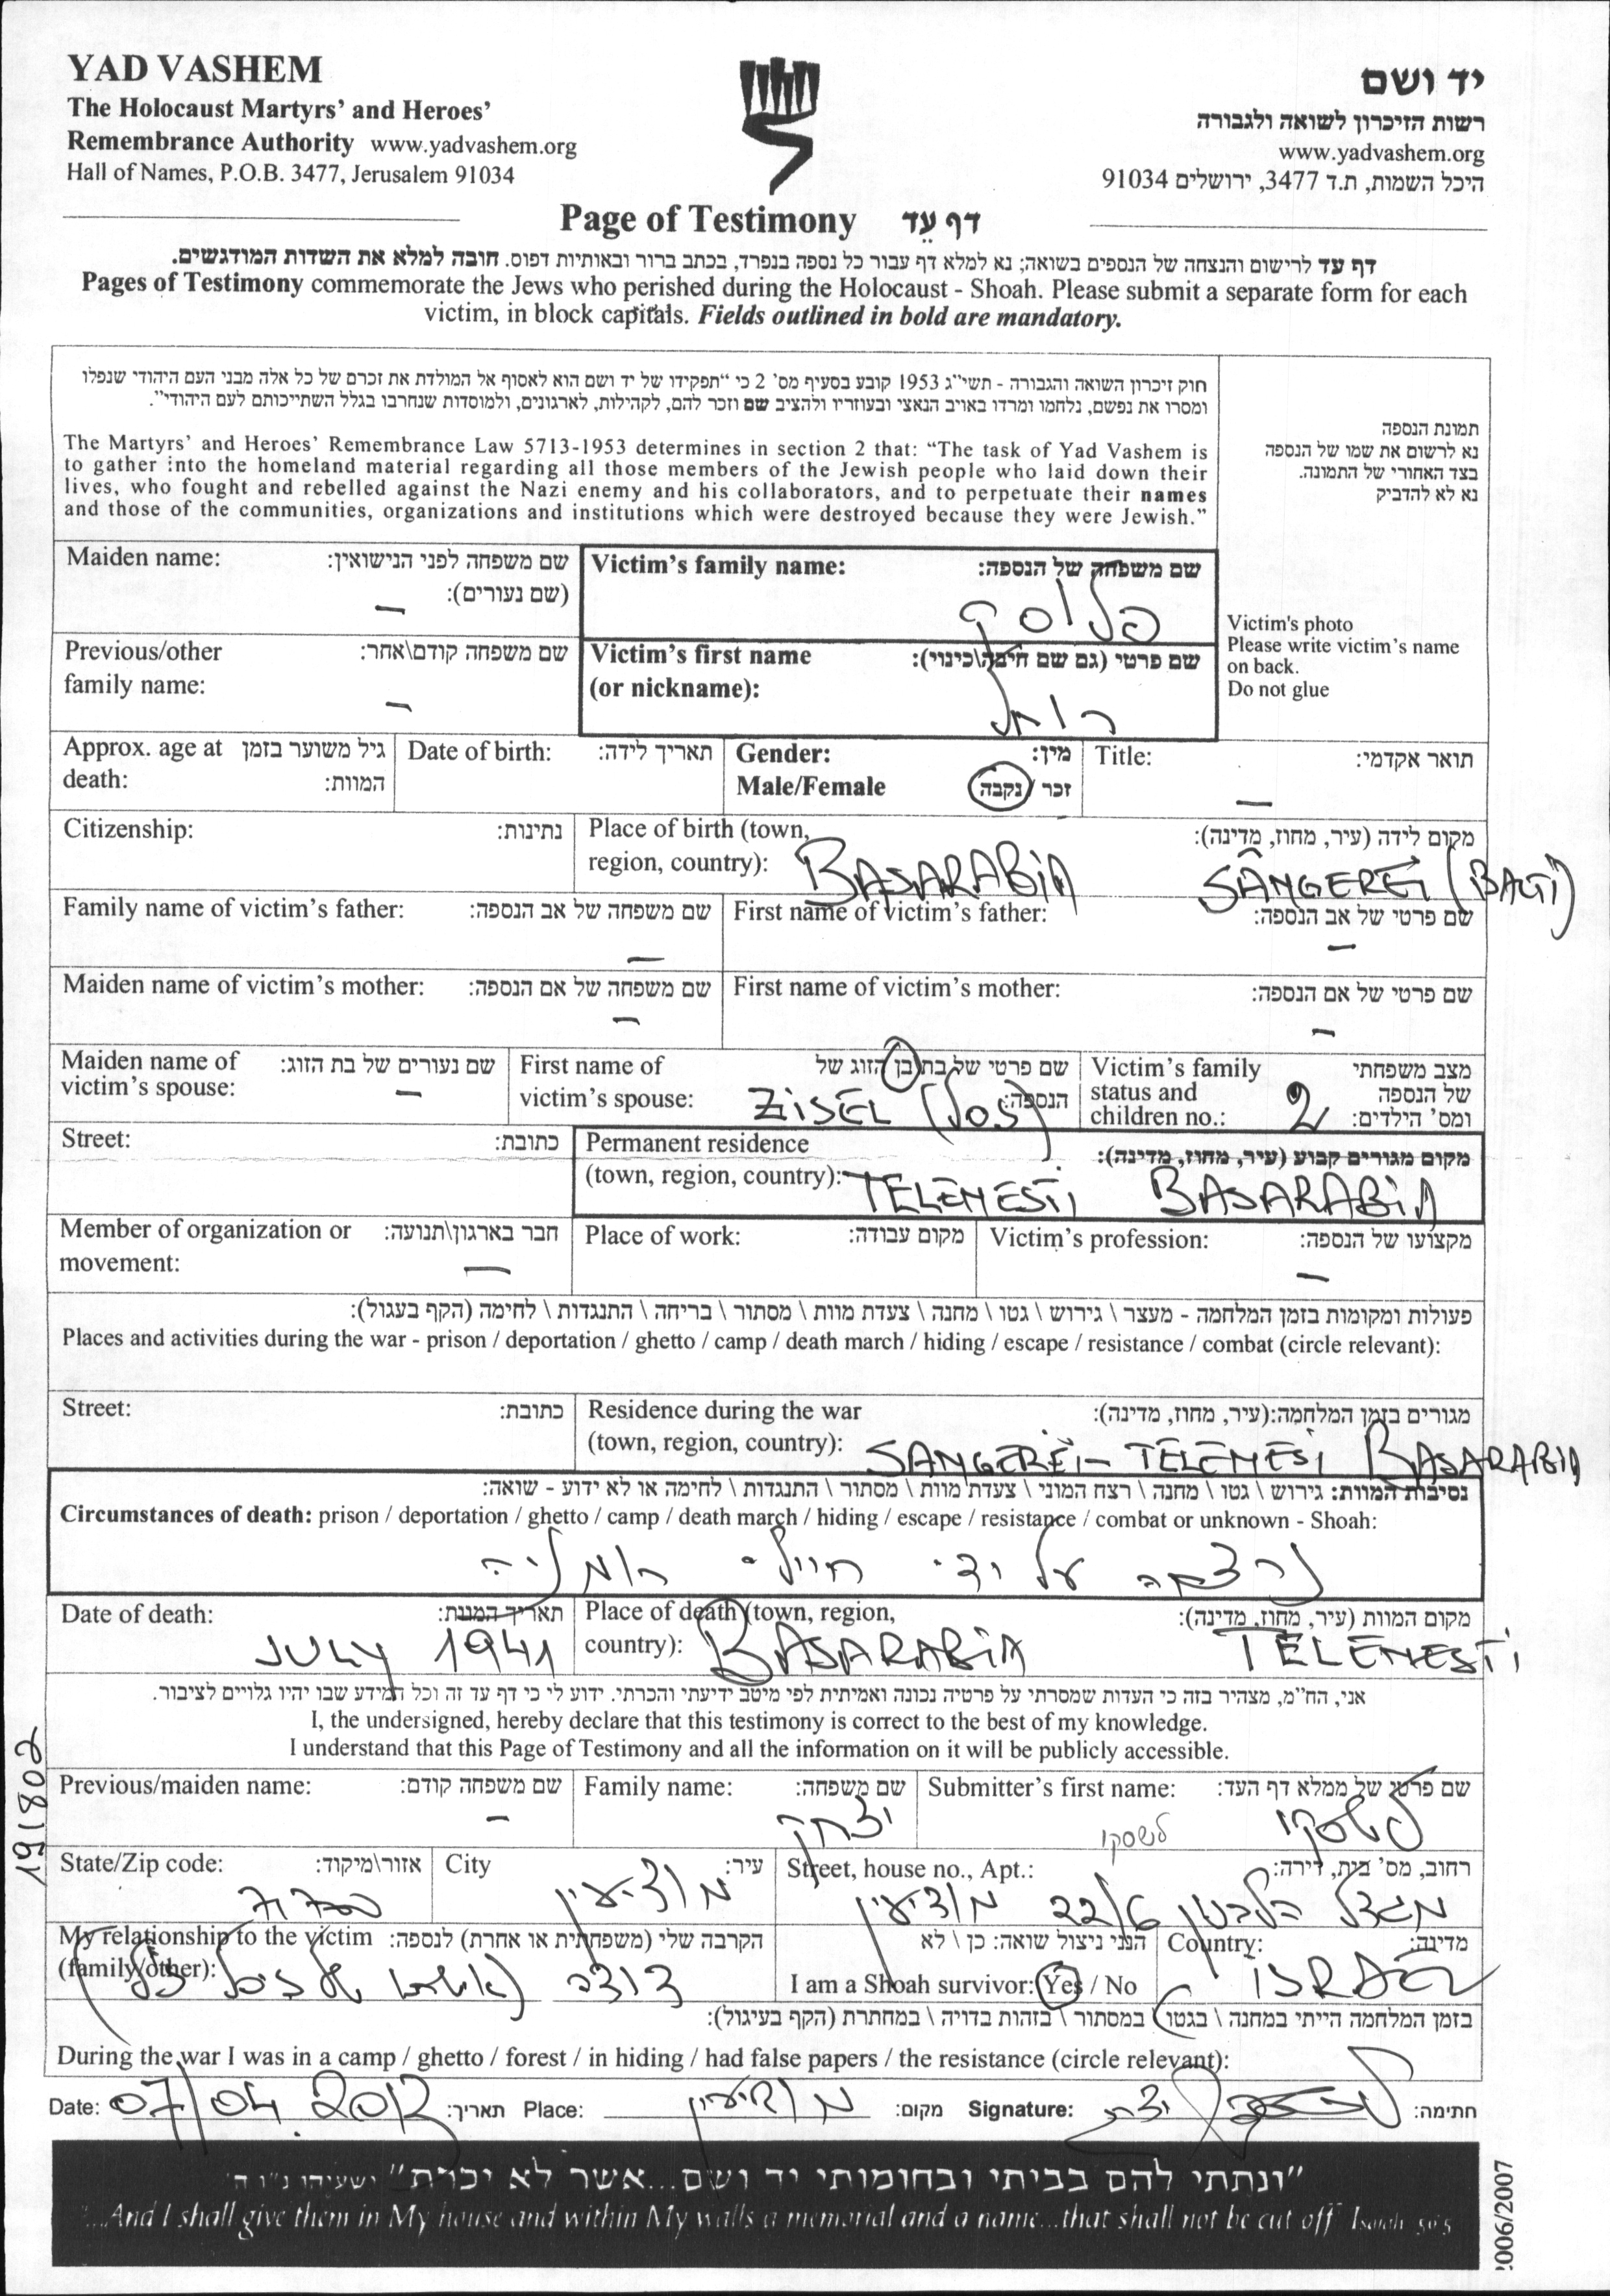 YAD VASHEM
The Holocaust Martyrs' and Heroes'
Remembrance Authority www.yadvashem.org
Hall of Names, P.O.B. 3477, Jerusalem 91034
יד ושם
רשות הזיכרון לשואה ולגבורה
www.yadvashem.org
היכל השמות, ת.ד 3477, ירושלים 91034
Page of Testimony דף עֵד
דף עד לרישום והנצחה של הנספים בשואה; נא למלא דף עבור כל נספה בנפרד, בכתב ברור ובאותיות דפוס. חובה למלא את השדות המודגשים.
Pages of Testimony commemorate the Jews who perished during the Holocaust - Shoah. Please submit a separate form for each
victim, in block capitals. Fields outlined in bold are mandatory.
חוק זיכרון השואה והגבורה - תשי"ג 1953 קובע בסעיף מס' 2 כי "תפקידו של יד ושם הוא לאסוף אל המולדת את זכרם של כל אלה מבני העם היהודי שנפלו
ומסרו את נפשם, נלחמו ומרדו באויב הנאצי ובעוזריו ולהציב שם וזכר להם, לקהילות, לארגונים, ולמוסדות שנחרבו בגלל השתייכותם לעם היהודי".
The Martyrs' and Heroes' Remembrance Law 5713-1953 determines in section 2 that: "The task of Yad Vashem is
to gather into the homeland material regarding all those members of the Jewish people who laid down their
lives, who fought and rebelled against the Nazi enemy and his collaborators, and to perpetuate their names
and those of the communities, organizations and institutions which were destroyed because they were Jewish."
תמונת הנספה
נא לרשום את שמו של הנספה
בצד האחורי של התמונה.
נא לא להדביק
Victim's photo
Please write victim's name
on back.
Do not glue
Maiden name: שם משפחה לפני הנישואין:
(שם נעורים):
–
Victim's family name: שם משפחה של הנספה:
פלוסק
Previous/other שם משפחה קודם\אחר:
family name:
–
Victim's first name שם פרטי (גם שם חיבה\כינוי):
(or nickname):
רוחל
Approx. age at גיל משוער בזמן
death: המוות:
Date of birth: תאריך לידה:
Gender: מין:
Male/Female זכר / נקבה
Title: תואר אקדמי:
–
Citizenship: נתינות:
Place of birth (town, מקום לידה (עיר, מחוז, מדינה):
region, country): BASARABIA SÂNGEREI (BALTI)
Family name of victim's father: שם משפחה של אב הנספה:
–
First name of victim's father: שם פרטי של אב הנספה:
–
Maiden name of victim's mother: שם משפחה של אם הנספה:
–
First name of victim's mother: שם פרטי של אם הנספה:
–
Maiden name of שם נעורים של בת הזוג:
victim's spouse: –
First name of שם פרטי של בת\בן הזוג של
victim's spouse: הנספה: ZISEL
Victim's family מצב משפחתי
status and של הנספה
children no.: ומס' הילדים: 2
Street: כתובת:
Permanent residence מקום מגורים קבוע (עיר, מחוז, מדינה):
(town, region, country): TELENESTI BASARABIA
Member of organization or חבר בארגון\תנועה:
movement: –
Place of work: מקום עבודה:
Victim's profession: מקצועו של הנספה:
–
פעולות ומקומות בזמן המלחמה - מעצר \ גירוש \ גטו \ מחנה \ צעדת מוות \ מסתור \ בריחה \ התנגדות \ לחימה (הקף בעגול):
Places and activities during the war - prison / deportation / ghetto / camp / death march / hiding / escape / resistance / combat (circle relevant):
Street: כתובת:
Residence during the war מגורים בזמן המלחמה:(עיר, מחוז, מדינה):
(town, region, country): SANGEREI - TELENESI BASARABIA
נסיבות המוות: גירוש \ גטו \ מחנה \ רצח המוני \ צעדת מוות \ מסתור \ התנגדות \ לחימה או לא ידוע - שואה:
Circumstances of death: prison / deportation / ghetto / camp / death march / hiding / escape / resistance / combat or unknown - Shoah:
נרצחה על ידי חיילי רומניה
Date of death: תאריך המוות:
JULY 1941
Place of death (town, region, מקום המוות (עיר, מחוז, מדינה):
country): BASARABIA TELENESTI
אני, הח"מ, מצהיר בזה כי העדות שמסרתי על פרטיה נכונה ואמיתית לפי מיטב ידיעתי והכרתי. ידוע לי כי דף עד זה וכל המידע שבו יהיו גלויים לציבור.
I, the undersigned, hereby declare that this testimony is correct to the best of my knowledge.
I understand that this Page of Testimony and all the information on it will be publicly accessible.
191802
Previous/maiden name: שם משפחה קודם:
–
Family name: שם משפחה:
יצחק
Submitter's first name: שם פרטי של ממלא דף העד:
לושסקו
לושסקו
State/Zip code: אזור\מיקוד:
City עיר:
מודיעין
Street, house no., Apt.: רחוב, מס' בית, דירה:
מגדל הלבנון 22/6 מודיעין
My relationship to the victim הקרבה שלי (משפחתית או אחרת) לנספה:
(family/other): דודה
הנני ניצול שואה: כן \ לא
I am a Shoah survivor: Yes / No
Country: מדינה:
ISRAEL
בזמן המלחמה הייתי במחנה \ בגטו \ במסתור \ בזהות בדויה \ במחתרת (הקף בעיגול):
During the war I was in a camp / ghetto / forest / in hiding / had false papers / the resistance (circle relevant):
Date: 07/04.2012 תאריך: Place: מודיעין מקום: Signature: חתימה:
"ונתתי להם בביתי ובחומותי יד ושם...אשר לא יכרת" ישעיהו נ"ו ה'
"...And I shall give them in My house and within My walls a memorial and a name...that shall not be cut off" Isaiah 56:5
2006/2007